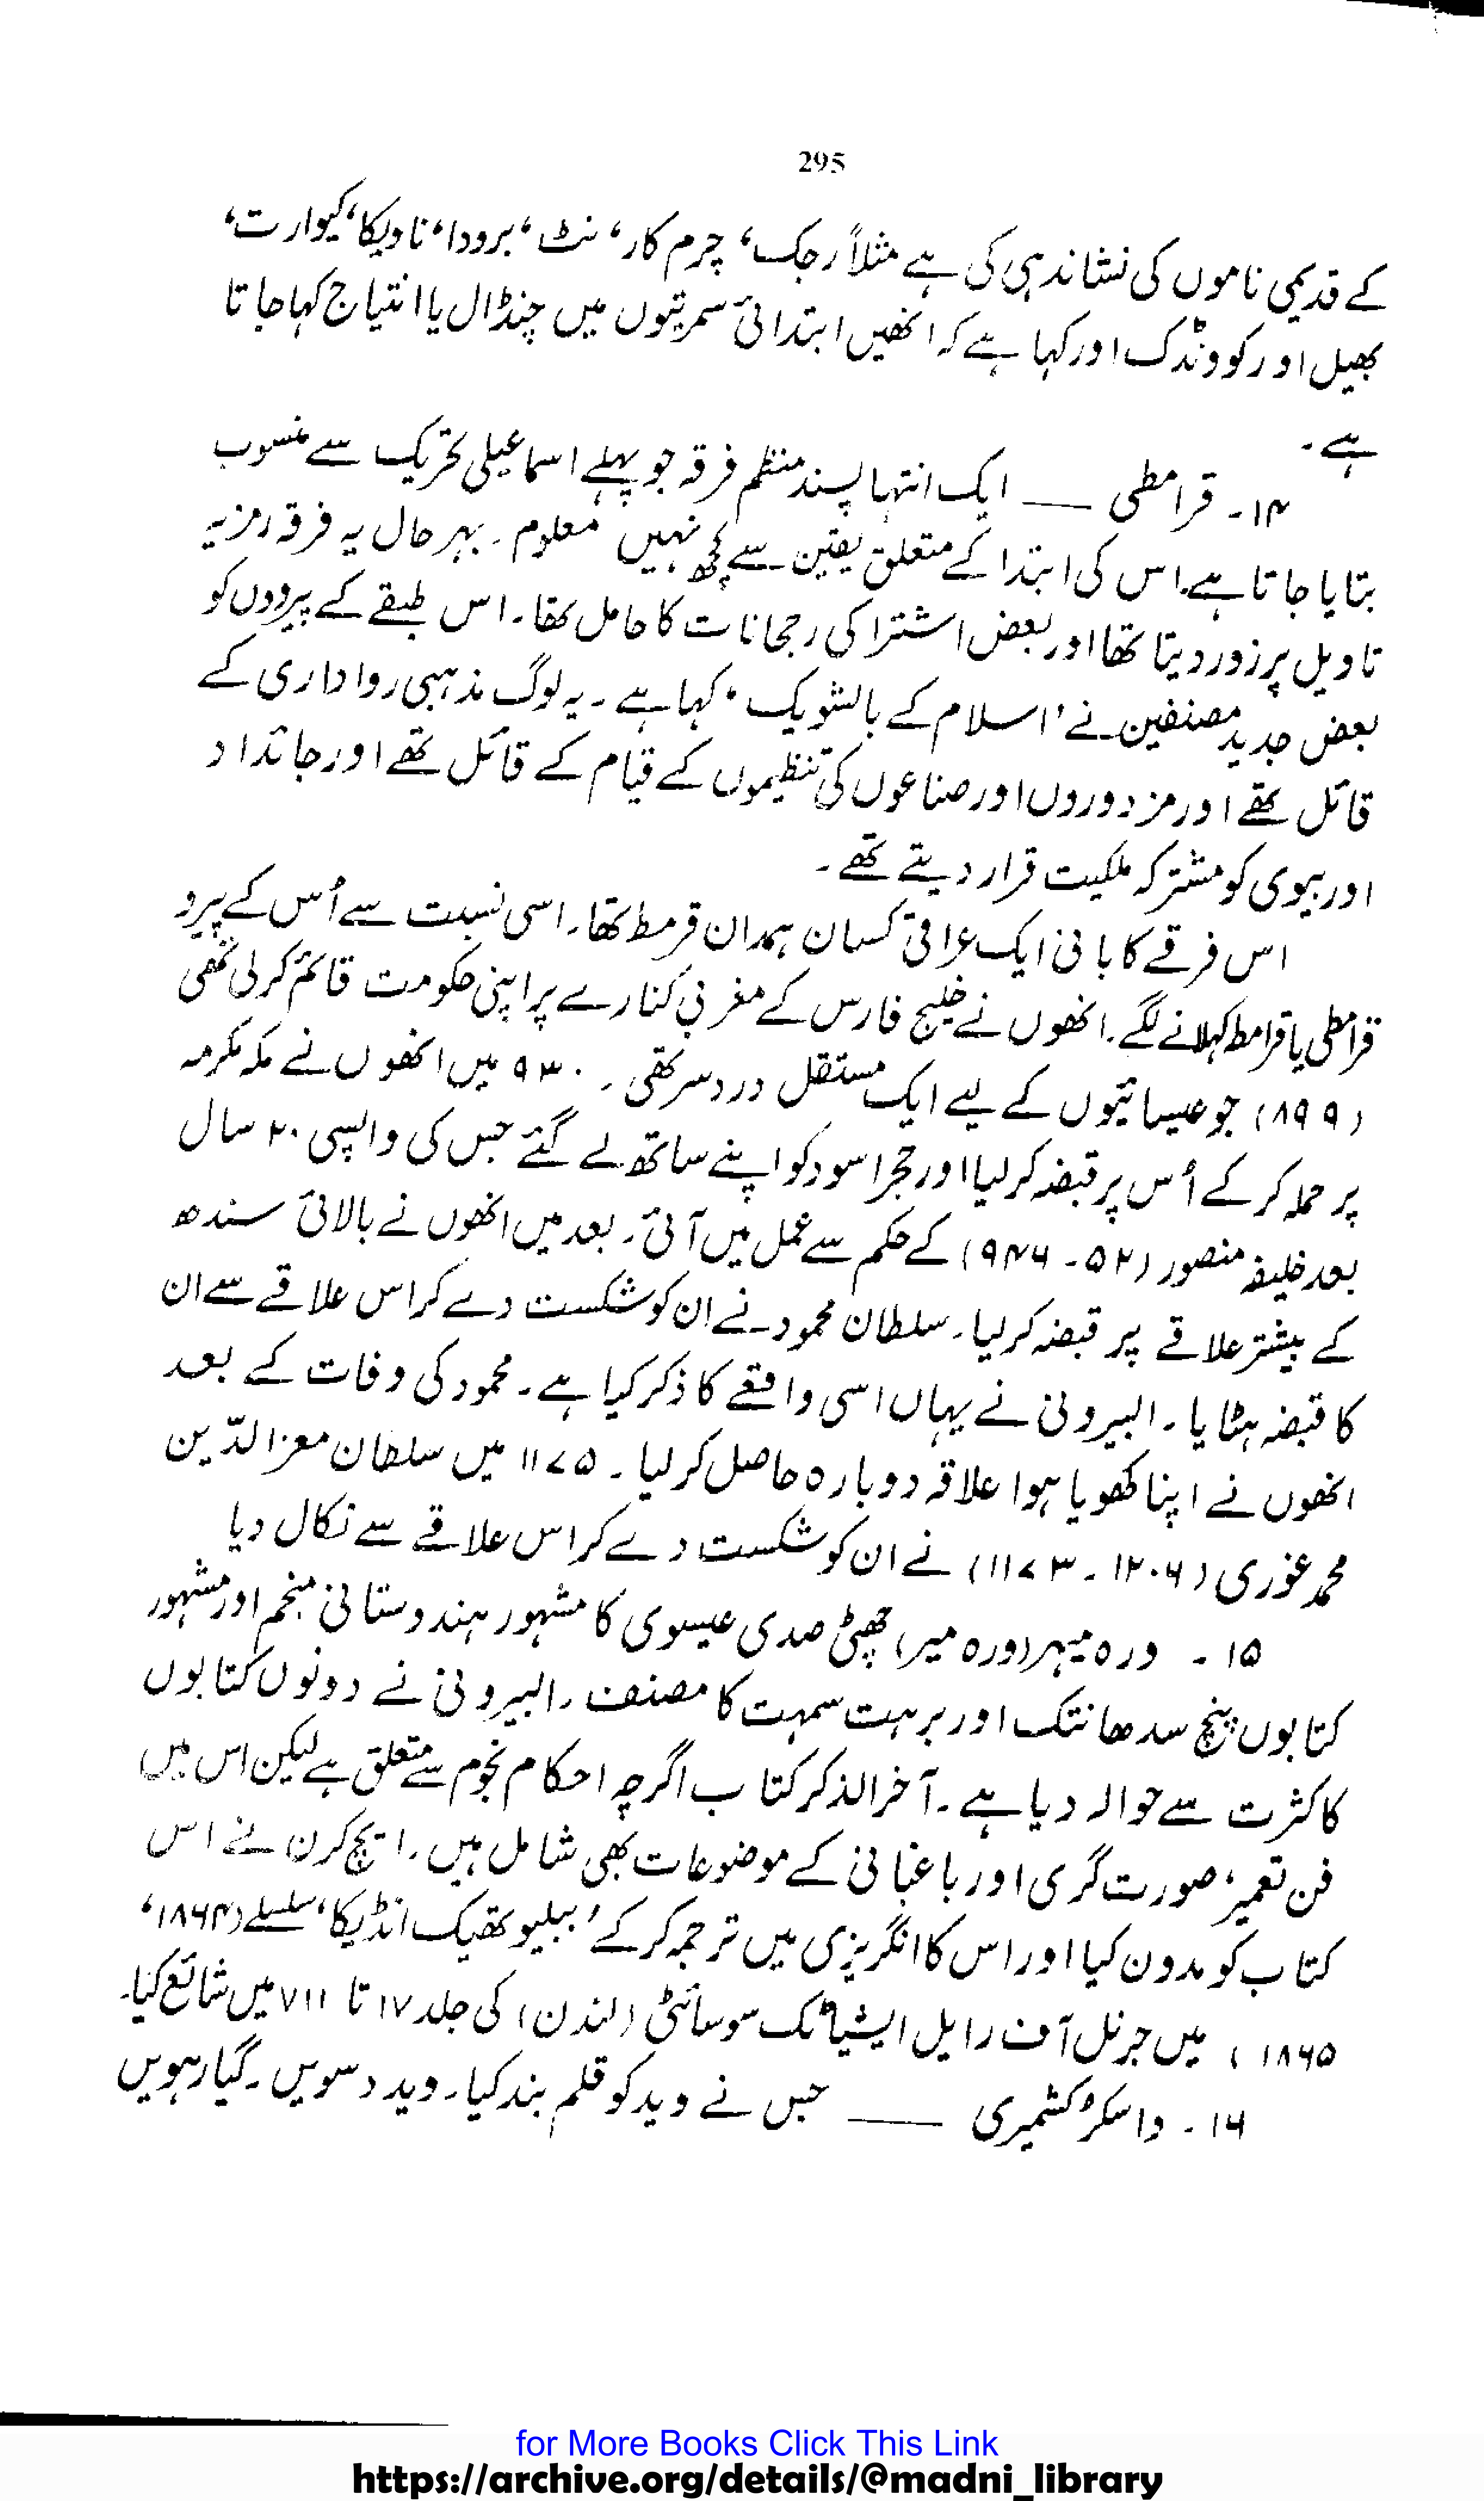 295
کے قدیمی ناموں کی نشاندہی کی ہے مثلاً رجک، چرم کار، نٹ، برودا، نادیکا، کیوارت،
بھیل اور کووندک اور کہا ہے کہ انھیں ابتدائی سمرتیوں میں چنڈال یا انتیاج کہا جاتا
ہے۔
۱۴۔ قرامطی — ایک انتہا پسند منظم فرقہ جو پہلے اسماعیلی تحریک سے منسوب
بتایا جاتا ہے۔ اس کی ابتدا کے متعلق یقین سے کچھ نہیں معلوم۔ بہر حال یہ فرقہ رمزیہ
تاویل پر زور دیتا تھا اور بعض اشتراکی رجحانات کا حامل تھا۔ اس طبقے کے پیرووں کو
بعض جدید مصنفین نے 'اسلام کے بالشویک' کہا ہے۔ یہ لوگ مذہبی رواداری کے
قائل تھے اور مزدوروں اور صناعوں کی تنظیموں کے قیام کے قائل تھے اور جائداد
اور بیوی کو مشترکہ ملکیت قرار دیتے تھے۔
اس فرقے کا بانی ایک عراقی کسان ہمدان قرمط تھا۔ اسی نسبت سے اُس کے پیرو
قرامطی یا قرامط کہلانے لگے۔ انھوں نے خلیج فارس کے مغربی کنارے پر اپنی حکومت قائم کرلی تھی
(۸۹۹) جو عیسائیوں کے لیے ایک مستقل درد سر تھی۔ ۹۳۰ میں انھوں نے مکہ مکرمہ
پر حملہ کر کے اُس پر قبضہ کر لیا اور حجر اسود کو اپنے ساتھ لے گئے جس کی واپسی ۲۰ سال
بعد خلیفہ منصور (۵۲۔۹۴۶) کے حکم سے عمل میں آئی۔ بعد میں انھوں نے بالائی سندھ
کے بیشتر علاقے پر قبضہ کر لیا۔ سلطان محمود نے ان کو شکست دے کر اس علاقے سے ان
کا قبضہ ہٹایا۔ البیرونی نے یہاں اسی واقعے کا ذکر کیا ہے۔ محمود کی وفات کے بعد
انھوں نے اپنا کھویا ہوا علاقہ دوبارہ حاصل کر لیا۔ ۱۱۷۵ میں سلطان معز الدّین
محمد غوری (۱۲۰۶۔۱۱۷۳) نے ان کو شکست دے کر اس علاقے سے نکال دیا
۱۵۔ ورہ میہر (ورہ میر) چھٹی صدی عیسوی کا مشہور ہندوستانی منجم اور مشہور
کتابوں پنچ سدھانتک اور برہت سمہت کا مصنف۔ البیرونی نے دونوں کتابوں
کا کثرت سے حوالہ دیا ہے۔ آخر الذکر کتاب اگرچہ احکام نجوم سے متعلق ہے لیکن اس میں
فن تعمیر، صورت گری اور باغبانی کے موضوعات بھی شامل ہیں۔ ایچ کرن نے اس
کتاب کو مدون کیا اور اس کا انگریزی میں ترجمہ کر کے 'ببلیوتھیک انڈیکا' سلسلے (۱۸۶۴،
۱۸۶۵) میں جرنل آف رایل ایشیاٹک سوسائٹی (لندن) کی جلد ۱۷ تا ۷۱۱ میں شائع کیا۔
۱۶۔ واسکر کشمیری — جس نے وید کو قلم بند کیا۔ وید دسویں۔ گیارہویں
for More Books Click This Link
https://archive.org/details/@madni_library